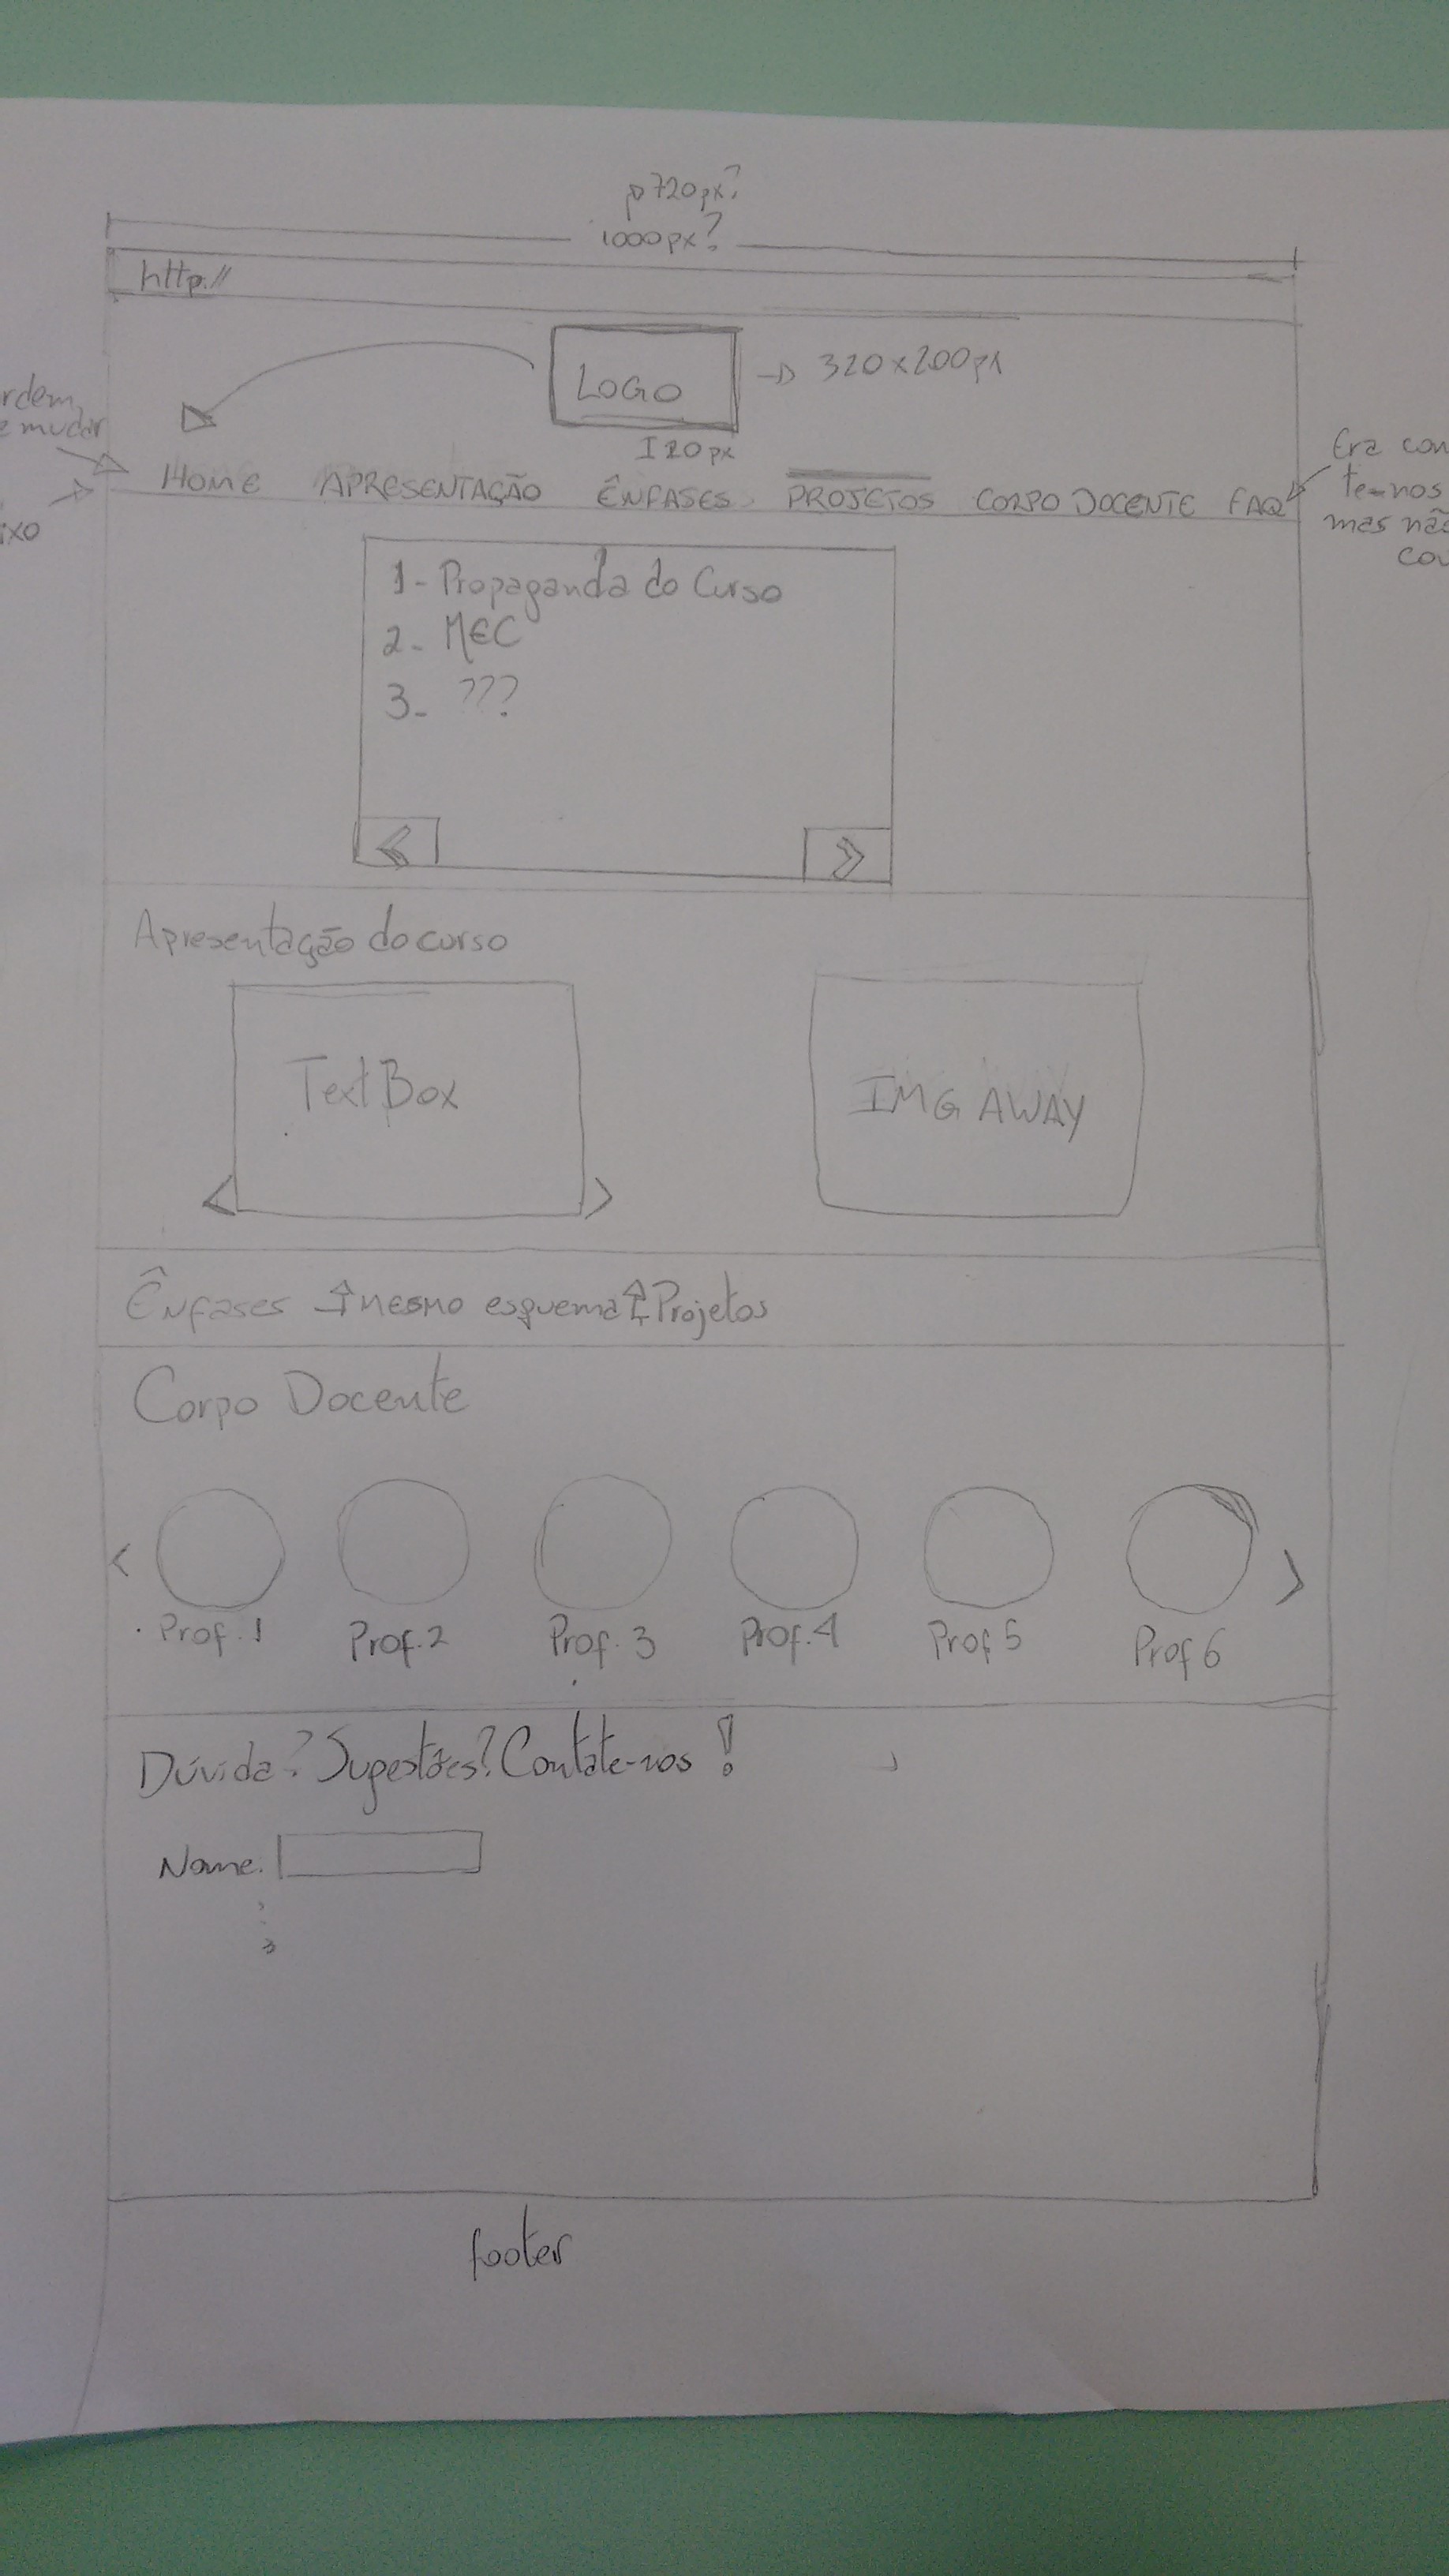 720px?
1000px?
http://
LOGO
320x200px
120px
HOME APRESENTAÇÃO ÊNFASES PROJETOS CORPO DOCENTE FAQ
mudar
Era
te-nos
mas
1- Propaganda do Curso
2- MEC
3- ???
Apresentação do curso
Text Box
IMG AWAY
Ênfases mesmo esquema Projetos
Corpo Docente
Prof. 1 Prof. 2 Prof. 3 Prof. 4 Prof 5 Prof 6
Dúvida? Sugestões? Contate-nos!
Nome:
footer